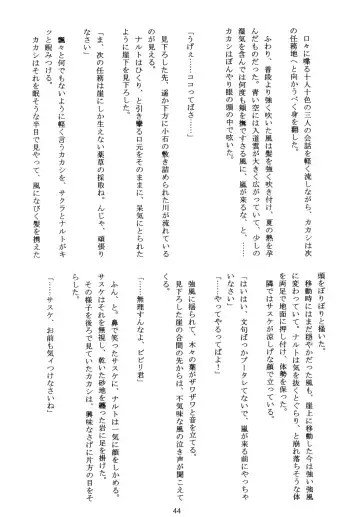 口々に喋る十人十色の三人の会話を軽く流しながら、カカシは次
の任務地へと向かうべく身を翻した。
ふわり、普段より強く吹いた風は髪を強く吹き付け、夏の熱を孕
んだものだった。青い空には入道雲が大きく広がっていて、少しの
湿気を含んでは何度も頬を撫でさする風に、嵐が来るな、と、……
カカシはぼんやり眼の頭の中で呟いた。
「うげぇ……ココってばさ……」
見下ろした先、遥か下方に小石の敷き詰められた川が流れている
のが見える。
ナルトはひくり、と引き攣る口元をそのままに、呆気にとられな
がら崖下を見下ろした。
「ま、次の任務は崖にしか生えない薬草の採取ね。んじゃ、頑張り
なさい」
飄々と何でもないように軽く言うカカシを、サクラとナルトがキ
ッと睨みつける。
カカシはそれすら涼しげな半目で見やって、風になびく髪を携えた
頭をぽりぽりと掻いた。
移動時にはまだ穏やかだった風も、崖上に移動した今は強い強風
に変わっていて、ナルトは気を抜くとぐらり、と崩れ落ちそうな体
を両足で地面に押し付け、体勢を保った。
隣ではサスケが涼しげな顔で立っている。
「はいはい、文句ばっかブータレてないで、嵐が来る前にやっちゃ
いなさい」
「……やってやるってばよ！」
強風に揺られて、木々の葉がザワザワと音を立てる。
見下ろした崖の合間の先からは、不気味な風の泣き声が聞こえて
くる。
「……無理すんなよ、ビビリ君」
ふん、と。鼻で笑ったサスケに、ナルトは一気に顔をしかめる。
サスケはそれを無視し、乾いた砂地を纏った岩に足を掛けた。
その様子を後ろで見ていたカカシは、興味なさげに片方の目をそ
らした。
「……サスケ、お前も気ィつけなさいね」
44